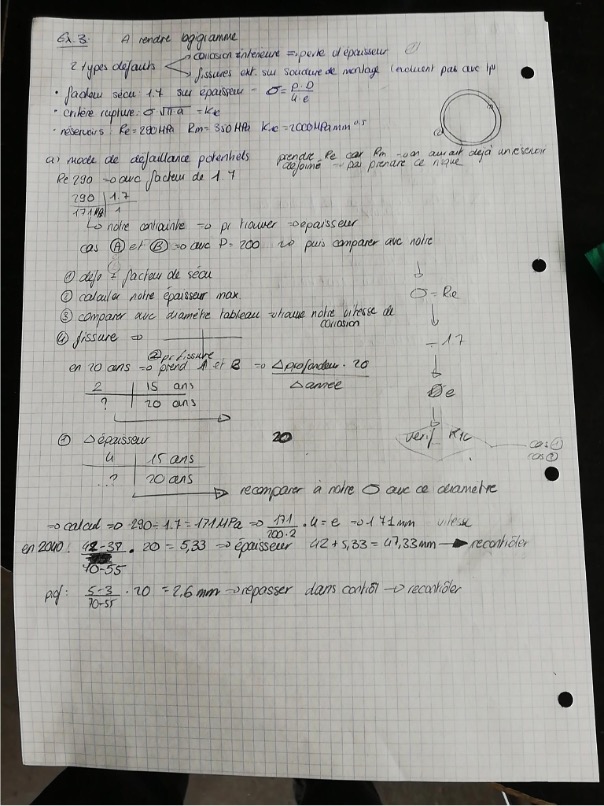 Ex 3: A rendre logigramme
2 types défauts corrosion intérieure => perte d'épaisseur
fissures ext. sur soudure de montage
• facteur sécu: 1.7 sur épaisseur - σ = P·D / 4·e
• critère rupture: σ √π·a = Kc
• réservoirs: Re = 290 MPa Rm = 350 MPa Kc = 2000 MPa mm^0.5
a) mode de défaillance potentiels prendre Re car Rm -> on aurait déjà un réservoir
déformé pas prendre ce risque
Re 290 -> avec facteur de 1.7
290 | 1.7
171 MPa | 1
-> notre contrainte => pr trouver => épaisseur
cas A et B => avec P = 200 puis comparer avec notre
① facteur de sécu
② calculer notre épaisseur max
③ comparer avec diamètre tableau => notre vitesse de
corrosion
④ fissure =>
σ = Re
- 1.7
verif K1c
cas ①
cas ②
en 20 ans => prend A et B => Δprofondeur · 20 / Δannée
2 | 15 ans
? | 20 ans
① Δépaisseur 20
4 | 15 ans
? | 20 ans
recomparer à notre σ avec ce diamètre
=> calcul => 290 = 1.7 = 171 MPa => 171 / 200·2 · 4 = e => 1.71 mm vitesse
en 2040: 42-38 / 70-55 · 20 = 5,33 -> épaisseur 42 + 5,33 = 47,33 mm -> recontrôler
5-3 / 70-55 · 20 = 2,6 mm -> repasser dans contrôl -> recontrôler